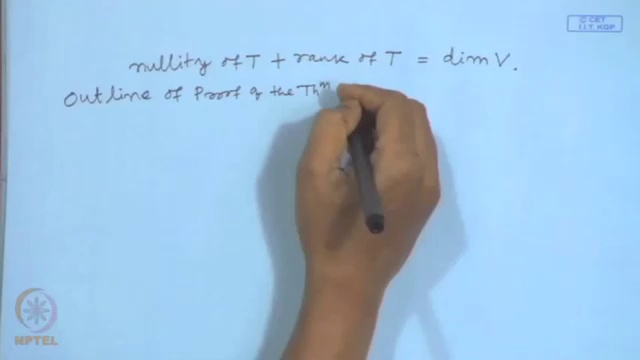 © CET
I.I.T. KGP
nullity of T + rank of T = dim V.
Outline of Proof of the Thm
NPTEL